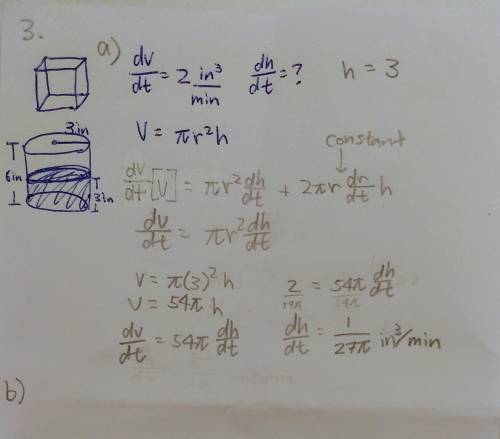 3.
a) dv/dt = 2 in³/min dh/dt = ? h = 3
3in
V = πr²h
constant
6in
3in
dv/dt [V] = πr² dh/dt + 2πr dr/dt h
dv/dt = πr² dh/dt
V = π(3)² h
V = 54π h
dv/dt = 54π dh/dt
2/54π = 54π/54π dh/dt
dh/dt = 1/27π in³/min
b)